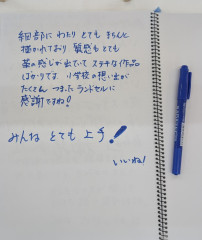 細部にわたり とても きちんと
描かれており 質感も とても
革の感じが出ていて ステキな作品
ばかりです 小学校の想い出が
たくさん つまった ランドセルに
感謝ですね!
みんな とても 上手!
いいね!